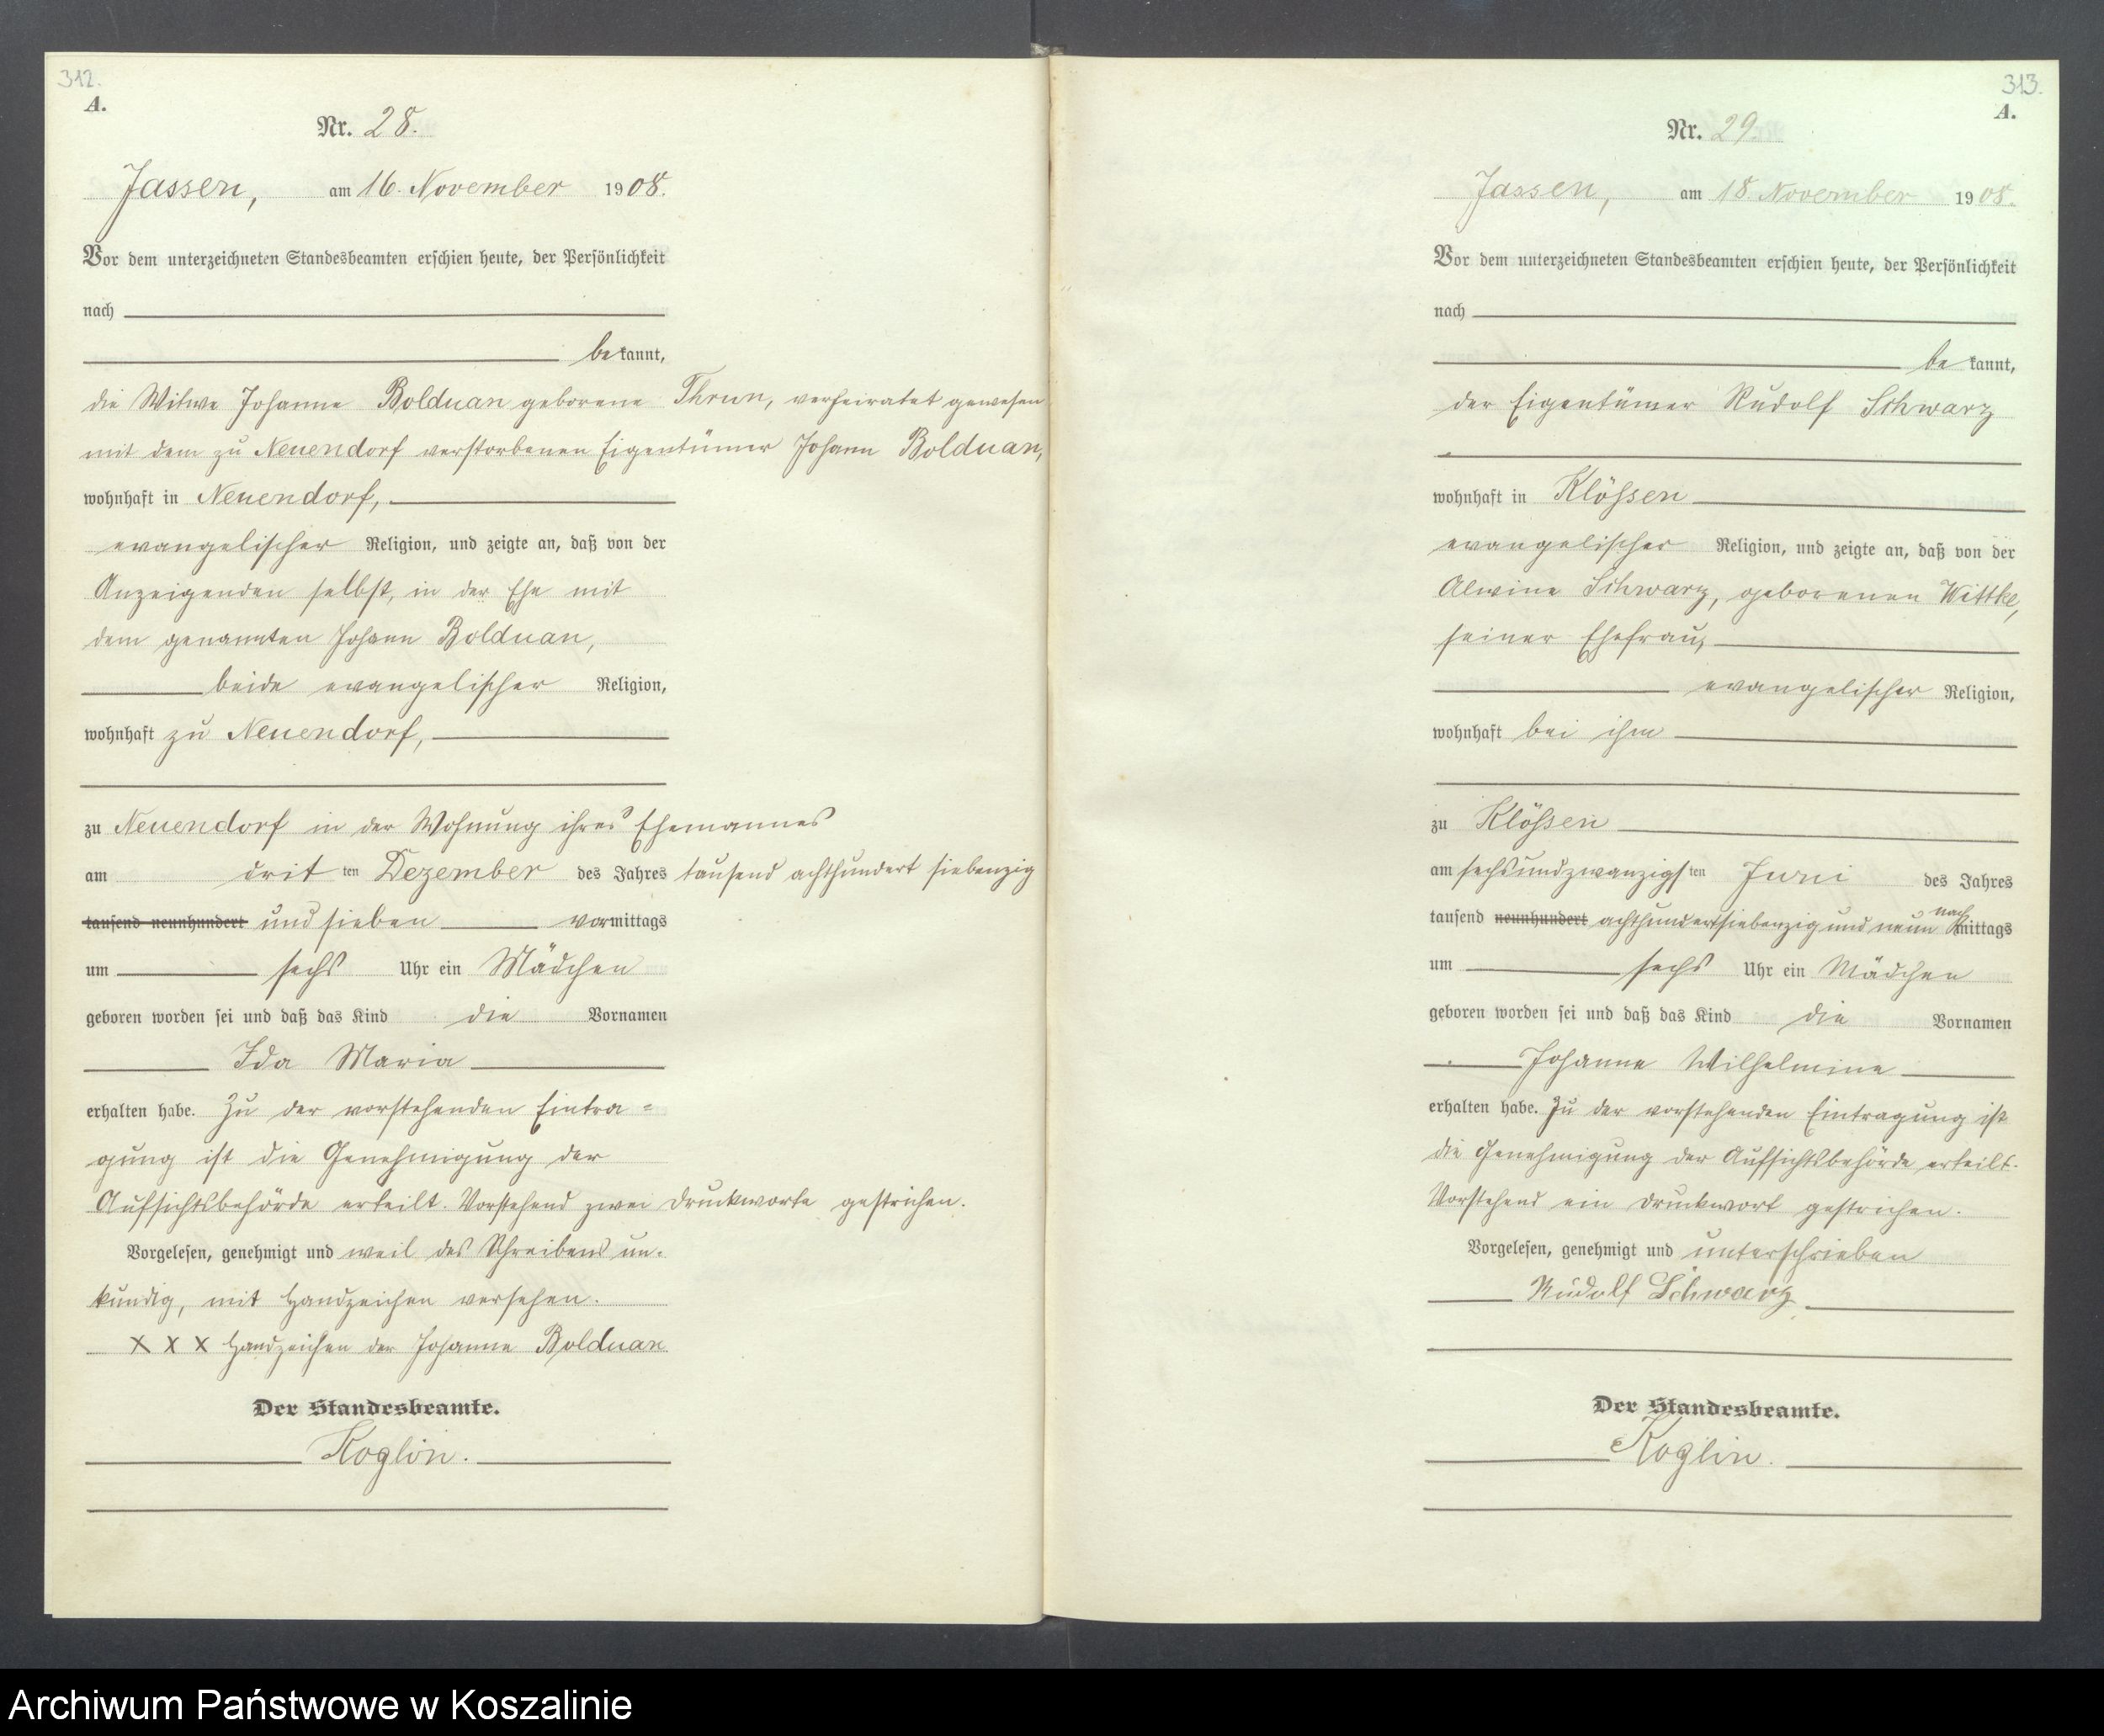 312.
A.
Nr. 28.
Jassen, am 16. November 1908.
Vor dem unterzeichneten Standesbeamten erschien heute, der Persönlichkeit
nach
bekannt,
die Witwe Johanne Bolduan geborene Thrun, verheiratet gewesen
mit dem zu Neuendorf verstorbenen Eigentümer Johann Bolduan,
wohnhaft in Neuendorf,
evangelischer Religion, und zeigte an, daß von der
Anzeigenden selbst, in der Ehe mit
dem genannten Johann Bolduan,
beide evangelischer Religion,
wohnhaft zu Neuendorf,
zu Neuendorf in der Wohnung ihres Ehemannes
am dritten Dezember des Jahres tausend achthundert siebenzig
tausend neunhundert und sieben vormittags
um sechs Uhr ein Mädchen
geboren worden sei und daß das Kind die Vornamen
Ida Maria
erhalten habe. Zu der vorstehenden Eintra=
gung ist die Genehmigung der
Aufsichtsbehörde erteilt. Vorstehend zwei Druckworte gestrichen.
Vorgelesen, genehmigt und weil des Schreibens un-
kundig, mit Handzeichen versehen.
X X X Handzeichen der Johanne Bolduan
Der Standesbeamte.
Koglin.
313.
A.
Nr. 29.
Jassen, am 18 November 1908.
Vor dem unterzeichneten Standesbeamten erschien heute, der Persönlichkeit
nach
bekannt,
der Eigentümer Rudolf Schwarz
wohnhaft in Klößen
evangelischer Religion, und zeigte an, daß von der
Alwine Schwarz, geborenen Wittke,
seiner Ehefrau,
evangelischer Religion,
wohnhaft bei ihm
zu Klößen
am sechsundzwanzigsten Juni des Jahres
tausend neunhundert achthundertsiebenzig und neun nachmittags
um sechs Uhr ein Mädchen
geboren worden sei und daß das Kind die Vornamen
Johanne Wilhelmine
erhalten habe. Zu der vorstehenden Eintragung ist
die Genehmigung der Aufsichtsbehörde erteilt.
Vorstehend ein Druckwort gestrichen.
Vorgelesen, genehmigt und unterschrieben
Rudolf Schwarz
Der Standesbeamte.
Koglin.
Archiwum Państwowe w Koszalinie